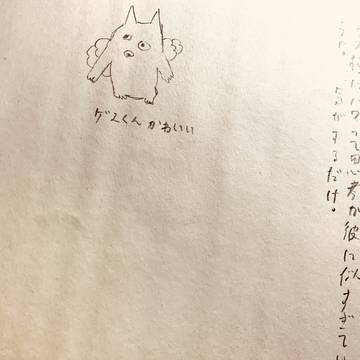 って思考が彼に似すぎてい
うな。気がするだけ。
ゲスくんかわいい